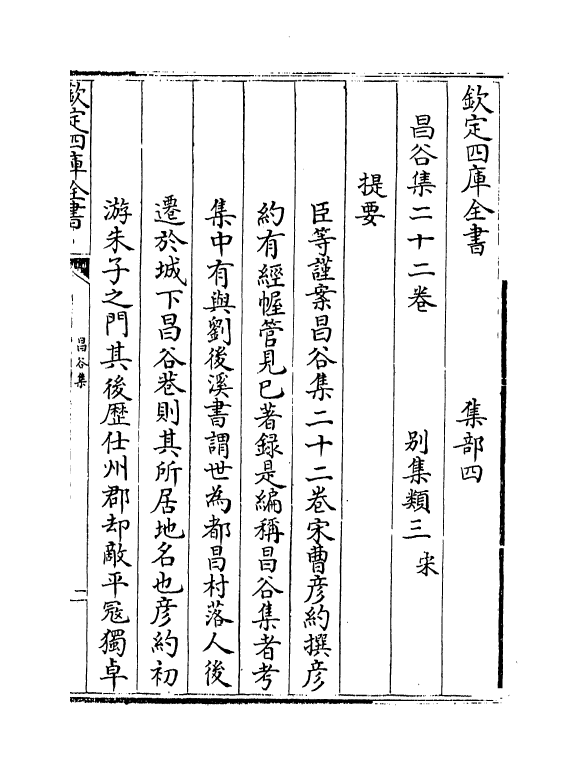 欽定四庫全書　集部四
昌谷集二十二卷　別集類三宋
提要
臣等謹案昌谷集二十二卷宋曹彦約撰彦
約有經幄管見已著録是編稱昌谷集者考
集中有與劉後溪書謂世為都昌村落人後
遷於城下昌谷巷則其所居地名也彦約初
游朱子之門其後歴仕州郡却敵平冦獨卓
欽定四庫全書
昌谷集
二